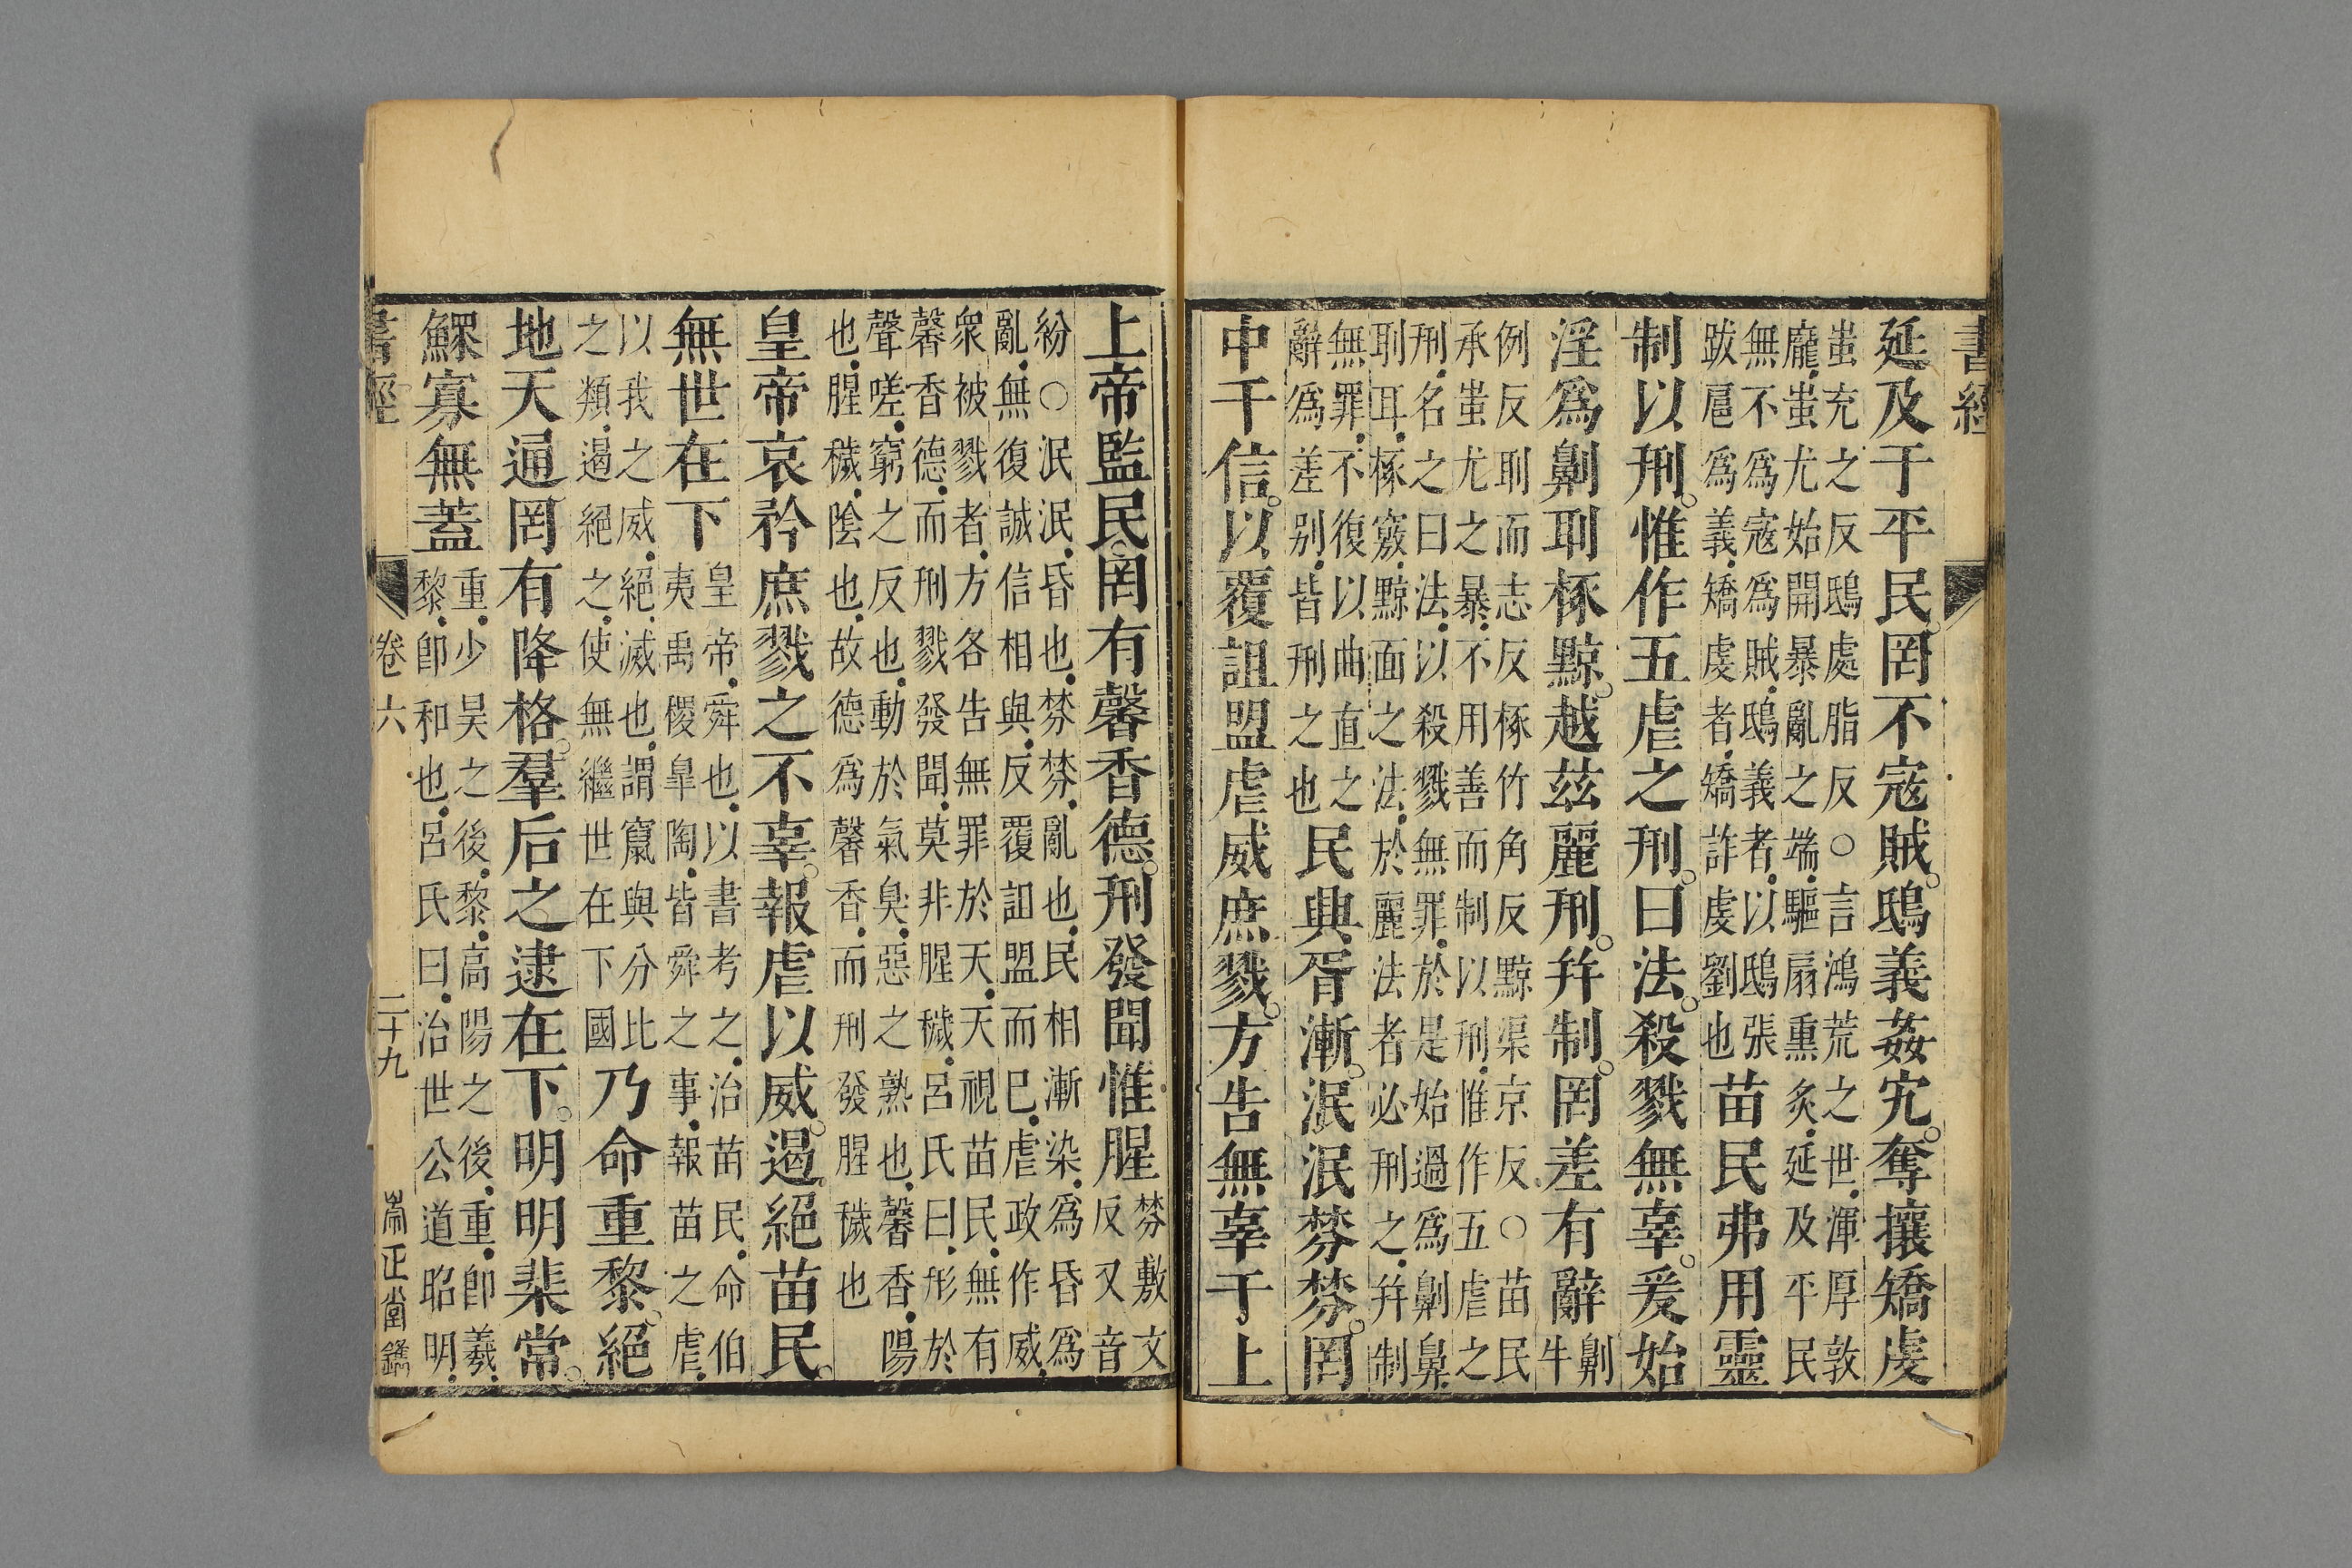 書經
延及于平民。罔不寇賊。鴟義姦宄。奪攘矯虔
蚩充之反鴟處脂反○言鴻荒之世渾厚敦
龐蚩尤始開暴亂之端驅扇熏炙延及平民
無不爲寇爲賊鴟義者以鴟張
跋扈爲義矯虔者矯詐虔劉也
苗民弗用靈
制以刑。惟作五虐之刑。曰法。殺戮無辜。爰始
淫爲劓刵椓黥。越茲麗刑。幷制。罔差有辭
劓牛
例反刵而志反椓竹角反黥渠京反○苗民
承蚩尤之暴不用善而制以刑惟作五虐之
刑名之曰法以殺戮無罪於是始過爲劓鼻
刵耳椓竅黥面之法於麗法者必刑之幷制
無罪不復以曲直之
辭爲差别皆刑之也
民興胥漸。泯泯棼棼。罔
中于信。以覆詛盟虐威庶戮。方告無辜于上
上帝監民。罔有馨香德。刑發聞惟腥
棼敷文
反又音
紛○泯泯昏也棼棼亂也民相漸染爲昏爲
亂無復誠信相與反覆詛盟而已虐政作威
衆被戮者方各告無罪於天天視苗民無有
馨香德而刑戮發聞莫非腥穢呂氏曰形於
聲嗟窮之反也動於氣臭惡之熟也馨香陽
也腥穢陰也故德爲馨香而刑發腥穢也
皇帝哀矜庶戮之不辜。報虐以威。遏絕苗民。
無世在下
皇帝舜也以書考之治苗民命伯
夷禹稷臯陶皆舜之事報苗之虐
以我之威絕滅也謂竄與分比
之類遏絕之使無繼世在下國
乃命重黎。絕
地天通罔有降格。羣后之逮在下。明明棐常。
鰥寡無蓋
重少昊之後黎高陽之後重卽羲
黎卽和也呂氏曰治世公道昭明
書經
卷六
二十九
崇正堂鐫